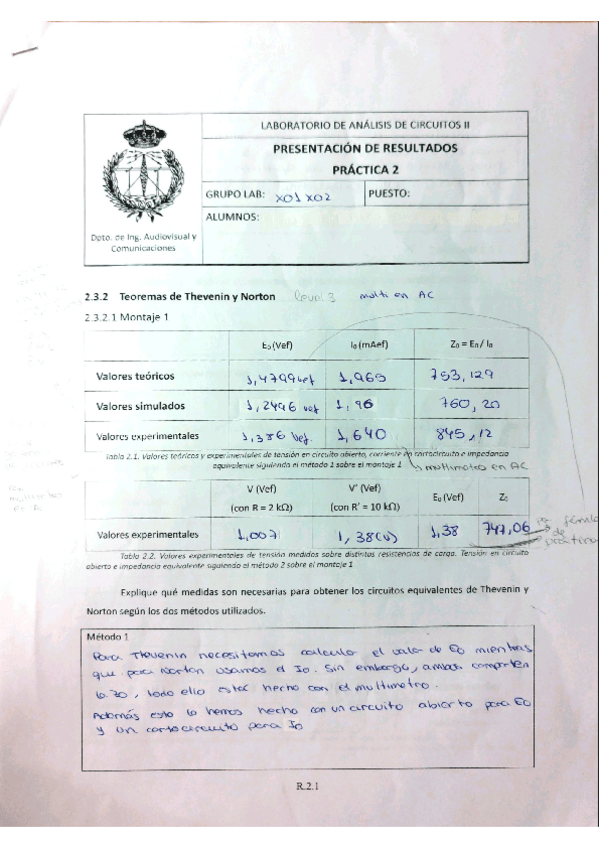 LABORATORIO DE ANÁLISIS DE CIRCUITOS II
PRESENTACIÓN DE RESULTADOS
PRÁCTICA 2
GRUPO LAB: X01 X02 PUESTO:
ALUMNOS:
Dpto. de Ing. Audiovisual y
Comunicaciones
2.3.2 Teoremas de Thevenin y Norton multi en AC
2.3.2.1 Montaje 1
E₀ (Vef) I₀ (mAef) Z₀ = E₀ / I₀
Valores teóricos 1,4799 Vef 1,965 753,129
Valores simulados 1,2496 Vef 1,96 760,20
Valores experimentales 1,386 Vef. 1,640 845,12
Tabla 2.1. Valores teóricos y experimentales de tensión en circuito abierto, corriente en cortocircuito e impedancia
equivalente siguiendo el método 1 sobre el montaje 1
multimetro en AC
V (Vef) V' (Vef) E₀ (Vef) Z₀
(con R = 2 kΩ) (con R' = 10 kΩ)
Valores experimentales 1,007 1,38(V) 1,38 747,06
de
Tabla 2.2. Valores experimentales de tensión medidos sobre distintas resistencias de carga. Tensión en circuito
abierto e impedancia equivalente siguiendo el método 2 sobre el montaje 1
Explique qué medidas son necesarias para obtener los circuitos equivalentes de Thevenin y
Norton según los dos métodos utilizados.
Método 1
Para Thevenin necesitamos calcular el valor de E0 mientras
que para Norton usamos el I0. Sin embargo, ambas comparten
la Z0, todo ello estar hecho con el multimetro.
Además esto lo hemos hecho con un circuito abierto para E0
y un cortocircuito para I0
R.2.1